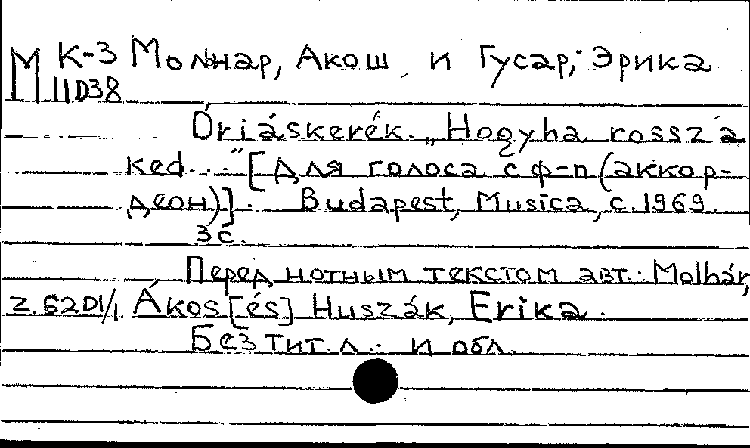 М К-3 Молнар, Акош и Гусар, Эрика
11D38
Óriáskerék. „Hogyha rossz a
ked..." [Для голоса с ф-п (аккор-
деон)]. Budapest, Musica, c.1969.
3 с.
Перед нотным текстом авт.: Molhár,
Z.62D1/1 Ákos [és] Huszák, Erika.
Без тит. л. и обл.